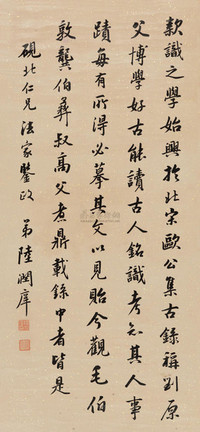 款識之學始興於北宋歐公集古錄稱劉原
父博學好古能讀古人銘識考知其人事
蹟每有所得必摹其文以見貽今觀毛伯
敦龔伯彝叔高父煮鼎載錄中者皆是
硯北仁兄法家鑒政 弟陸潤庠